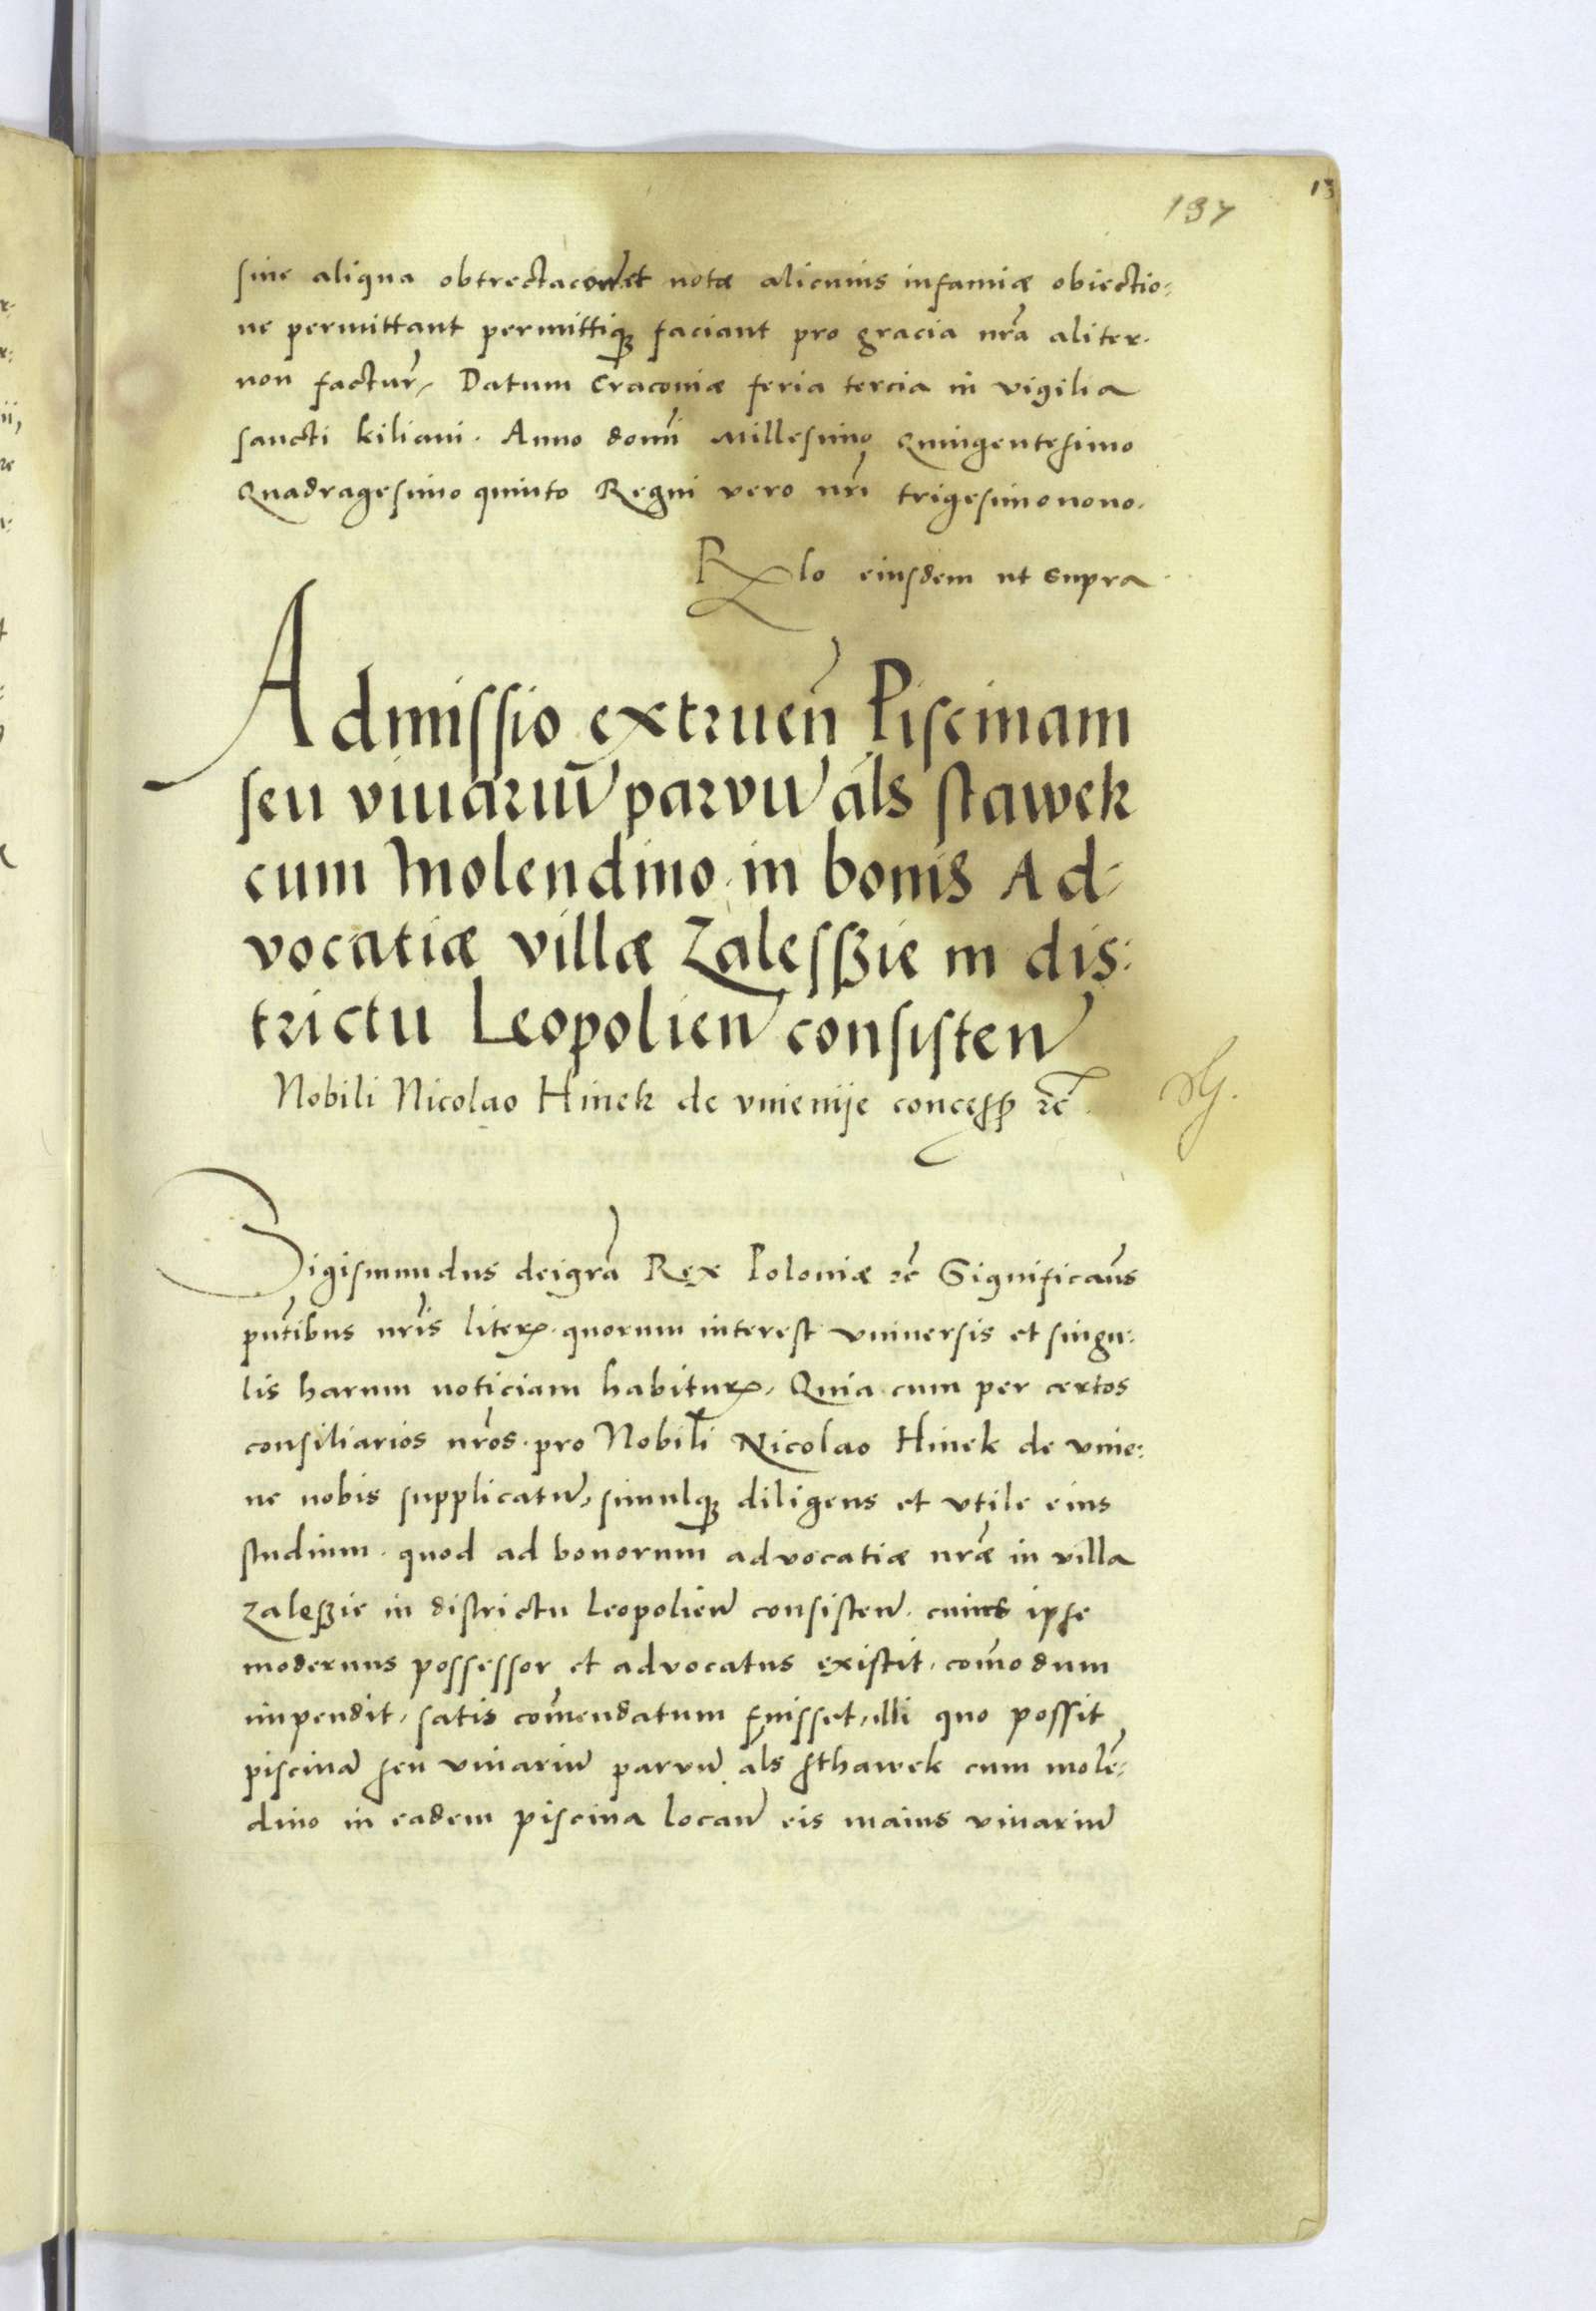 137
13
sine aliqua obtrectacōn̄ et notæ alicuius infamiæ obiectio:
ne permittant permittiqꝫ faciant pro gracia nr̄a aliter
non factur̄, Datum Cracoviæ feria tercia in vigilia
sancti kiliani. Anno domī Millesimo Quingentesimo
Quadragesimo quinto Regni vero nr̄i trigesimonono.
Rlo eiusdem ut supra
Admissio extruen̄ Piscinam
seu viuariū parvū als stawek
cum Molendino in bonis Ad:
vocatiæ villæ Zalesszie in dis:
trictu Leopolien̄ consisten̄
Nobili Nicolao Hinek de vnienije concess̄ ꝛc̄
Sigismundus dei gr̄a Rex Poloniæ ꝛc̄ Significam̄s
pn̄tibus nr̄is literꝭ quorum interest vniuersis et singu:
lis harum noticiam habiturꝭ, Quia cum per certos
consiliarios nr̄os pro Nobili Nicolao Hinek de vnie:
ne nobis supplicatū, simulqꝫ diligens et vtile eius
studium quod ad bonorum advocatiæ nr̄æ in villa
zalesszie in districtu Leopolien̄ consisten̄ cuius ipse
modernus possessor et advocatus existit com̄odum
impendit, satis com̄endatum fuisset, illi quo possit
piscinā seu viuariū parvū als sthawek cum molē:
dino in eadem piscina locan̄ cis maius viuariū